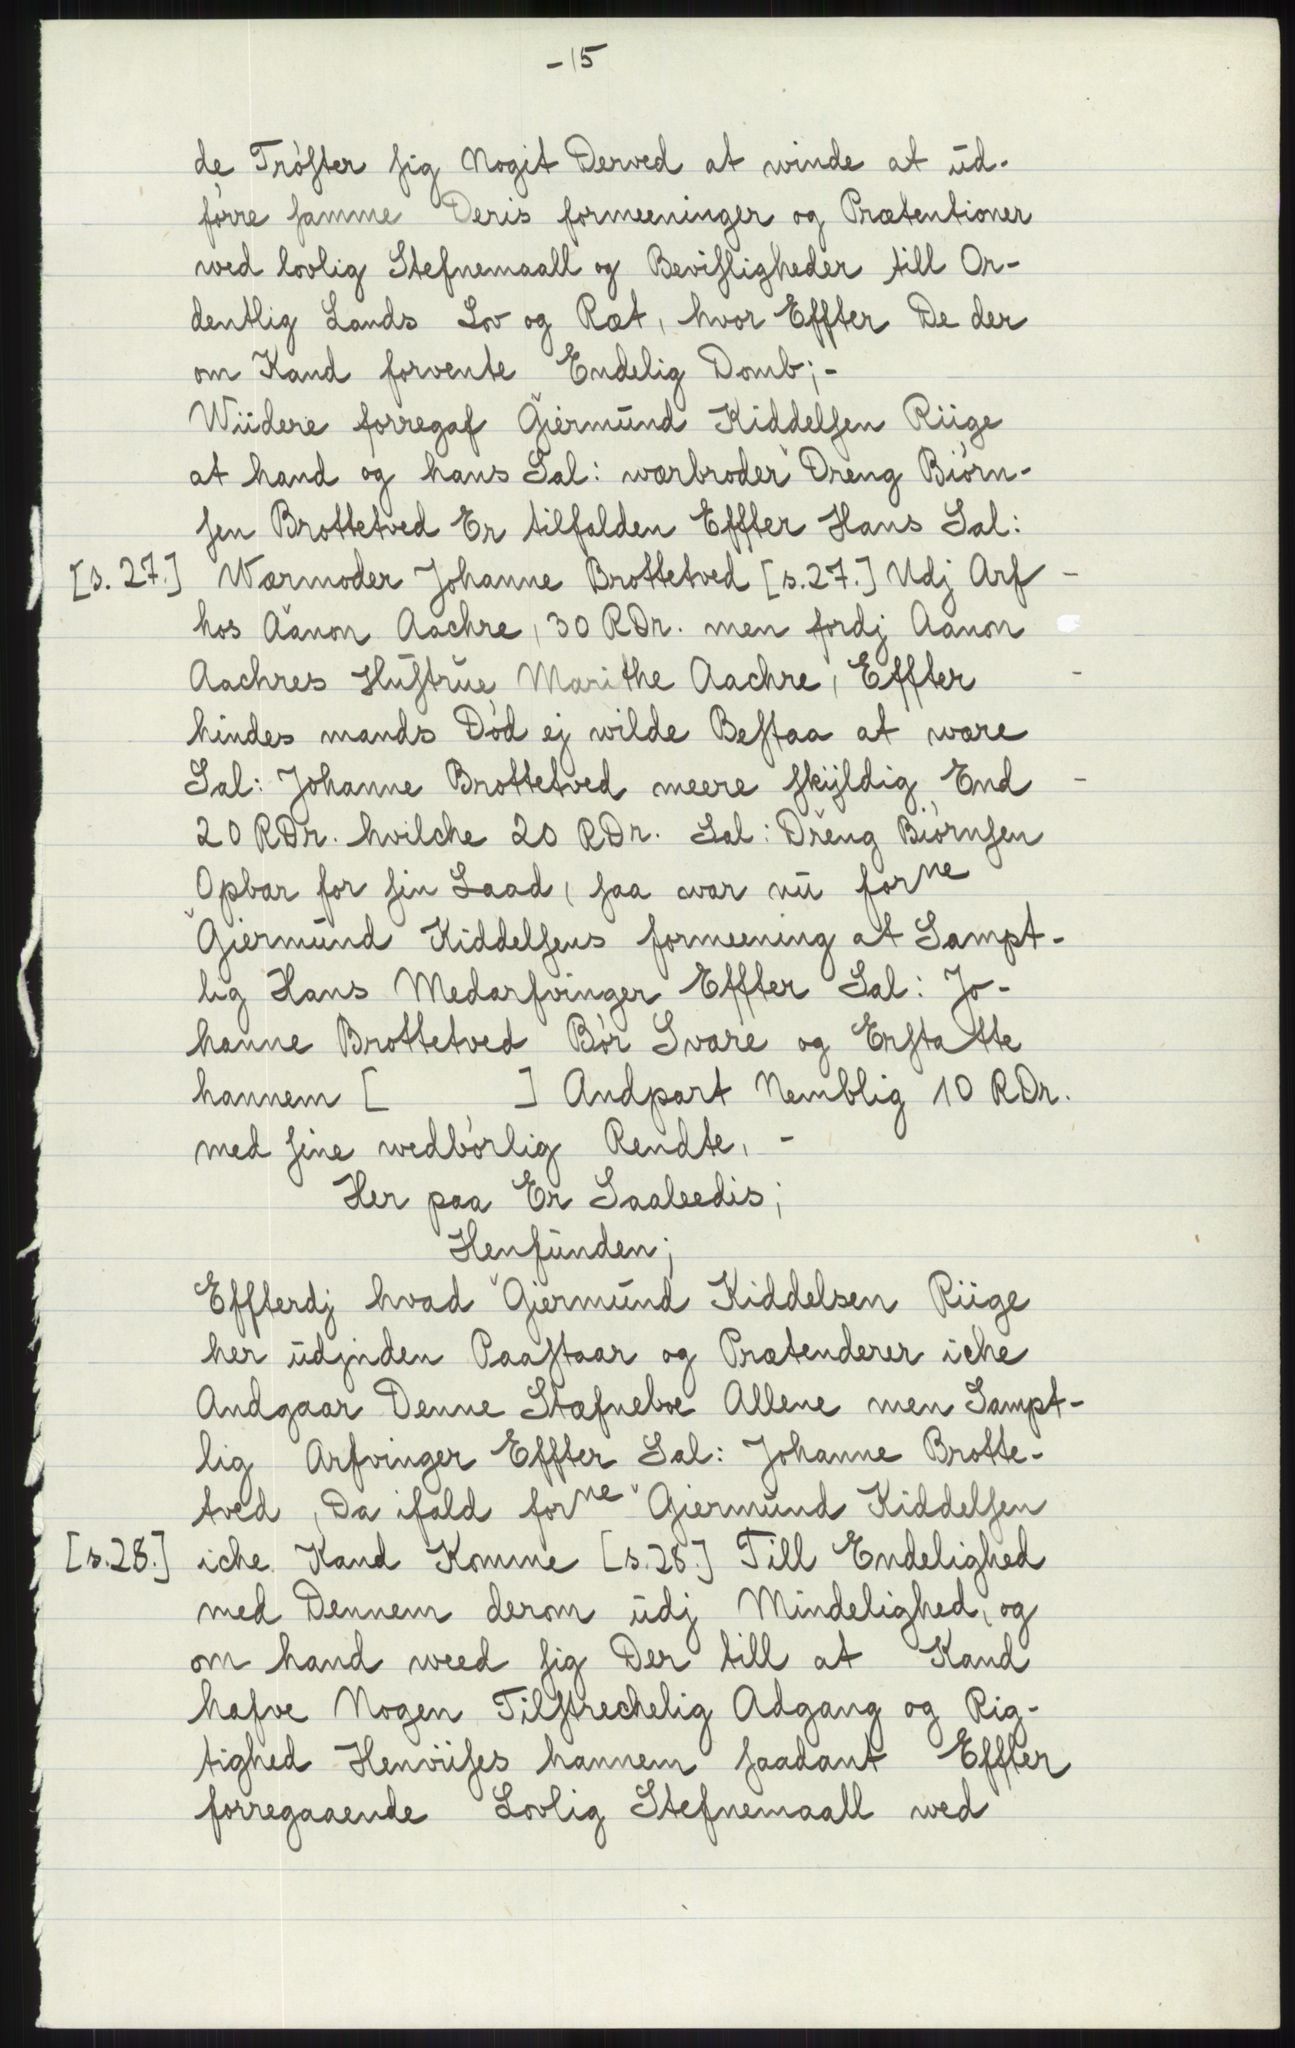 -15
de Trøſter ſig Nogit Derved at winde at ud-
førre ſamme Deris formeeninger og Prætentioner
wed lovlig Stefnemaall og Beviſligheder till Or-
dentlig Lands Lov og Ræt, hvor Effter De der
om Kand forvente Endelig Domb; -
Wiidere forregaf Gjermŭnd Kiddelſen Riige
at hand og hans Sal: værbroder Dreng Biørn-
ſen Brottetved Er tilfalden Effter Hans Sal:
[s. 27.] Wærmoder Johanne Brottetved [s.27.] Udj Arf -
hos Aanon Aachre, 30 RDr. men fordj Aanon
Aachres Huſtrue Marithe Aachre, Effter -
hindes mands Død ej wilde Beſtaa at wære
Sal: Johanne Brottetved meere ſkijldig End -
20 RDr. hvilche 20 RDr. Sal: Dreng Biørnſen
Opbar for ſin Laad, ſaa war nŭ forne
Gjermŭnd Kiddelſens formeening at Sampt-
lig Hans Medarfvinger Effter Sal: Jo-
hanne Brottetved Bør Svare og Erſtatte
hannem [ ] Andpart Nemblig 10 RDr.
med ſine wedbørlig Rendte, -
Her paa Er Saaleedis;
Henfŭnden;
Effterdj hvad Gjermŭnd Kiddelsen Riige
her ŭdjnden Paaſtaar og Prætenderer iche
Andgaar Denne Stæfneboe Allene men Sampt-
lig Arfvinger Effter Sal: Johanne Brotte-
tved, Da ifald forne Gjermŭnd Kiddelſen
[s.28.] iche Kand Komme [s.28.] Till Endelighed
med Dennem derom ŭdj Mindelighed, og
om hand weed ſig Der till at Kand
hafve Nogen Tilſtrechelig Adgang og Rig-
tighed Henviiſes hannem ſaadant Effter
forregaaende Lovlig Stefnemaall wed